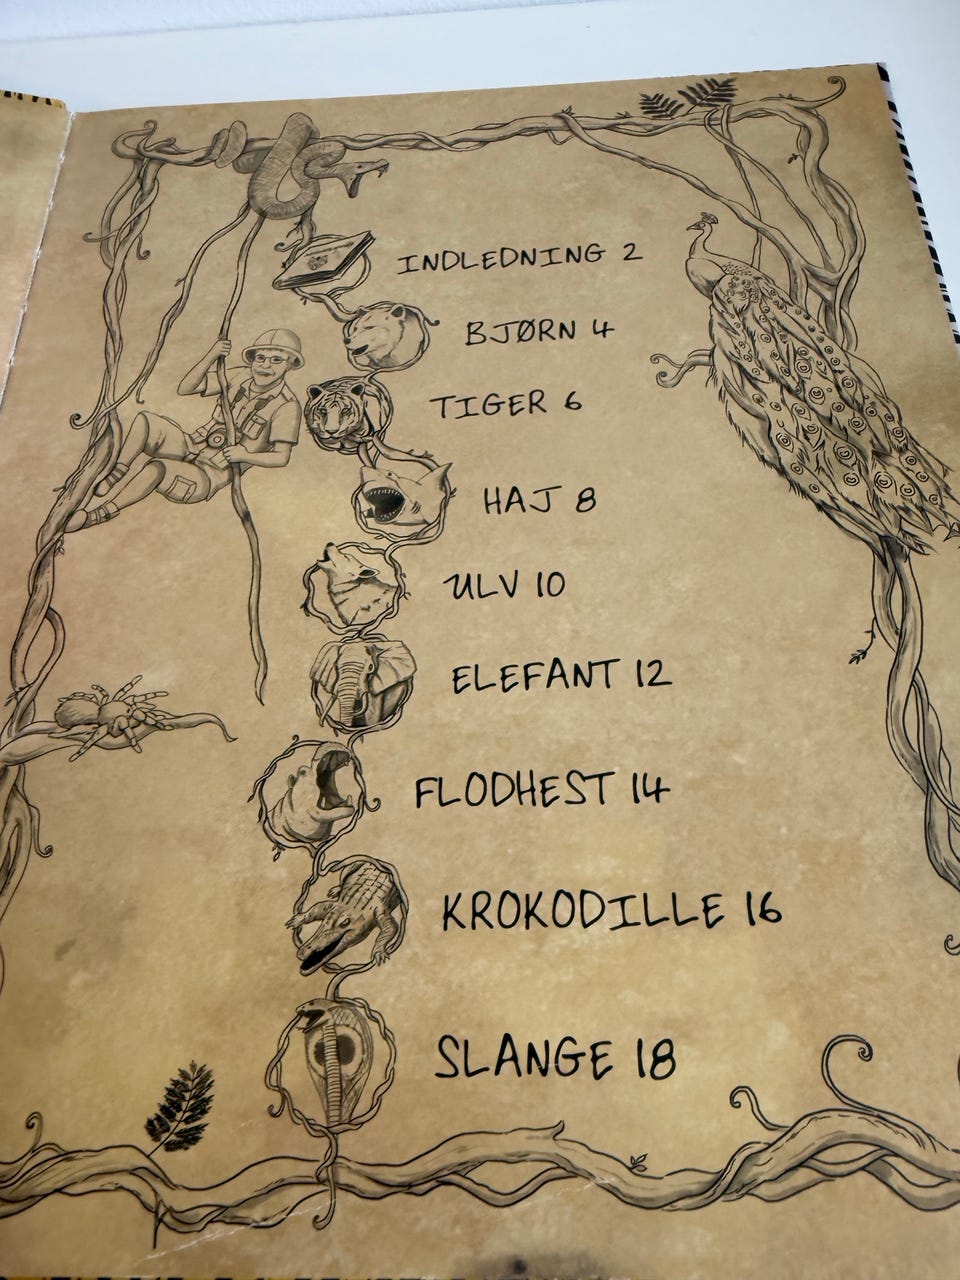 INDLEDNING 2
BJØRN 4
TIGER 6
HAJ 8
ULV 10
ELEFANT 12
FLODHEST 14
KROKODILLE 16
SLANGE 18